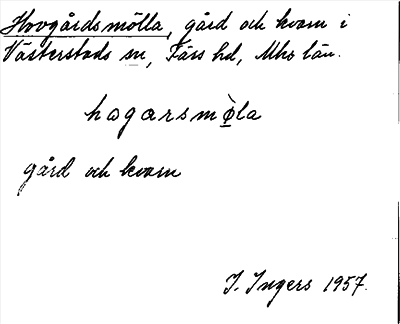 Hovgårdsmölla, gård och kvarn i
Västerstads sn, Färs hd, Mhs län.
hagarsmø̀la
gård och kvarn
I. Ingers 1957.